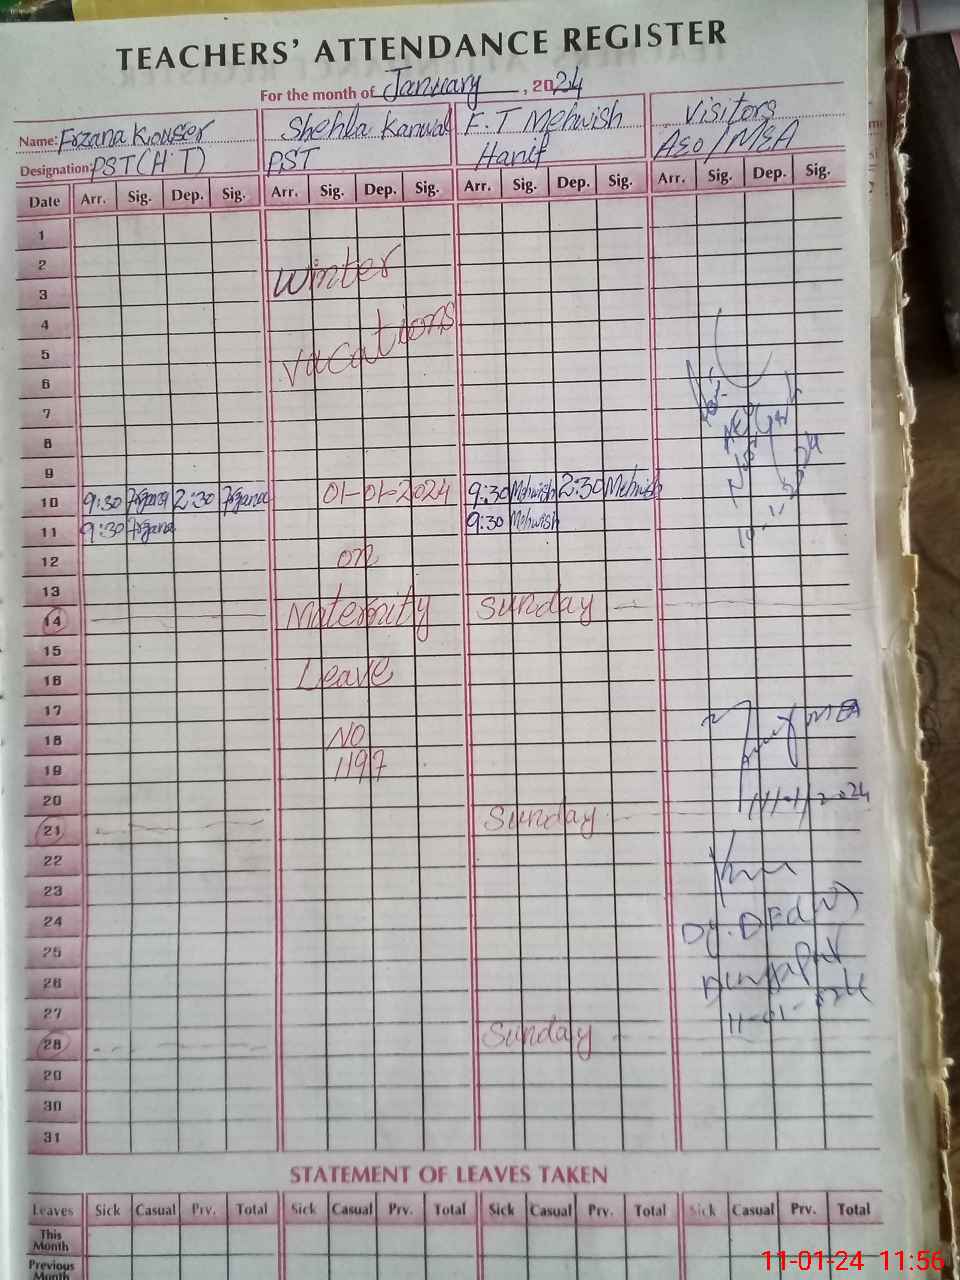 TEACHERS' ATTENDANCE REGISTER
For the month of January, 2024
Name: Fozana Kouser Shehla Kanwal F.T Mehwish Visitors
Designation: PST(H T) PST Hanif AEO/MEA
Date Arr. Sig. Dep. Sig. Arr. Sig. Dep. Sig. Arr. Sig. Dep. Sig. Arr. Sig. Dep. Sig.
1
2 Winter
3
4 vacations
5
6
7
8
9
10 9:30 Fozana 2:30 Fozana 01-01-2024 9:30 Mehwish 2:30 Mehwish
11 9:30 Fozana 9:30 Mehwish
12 on
13
14 Maternity Sunday
15
16 Leave
17
18 NO MEA
19 1197
20 11/1/2024
21 Sunday
22
23
24 Dy. DEO(W)
25
26
27 11-01-2024
28 Sunday
29
30
31
STATEMENT OF LEAVES TAKEN
Leaves Sick Casual Prv. Total Sick Casual Prv. Total Sick Casual Prv. Total Sick Casual Prv. Total
This Month
Previous Month
11-01-24 11:56